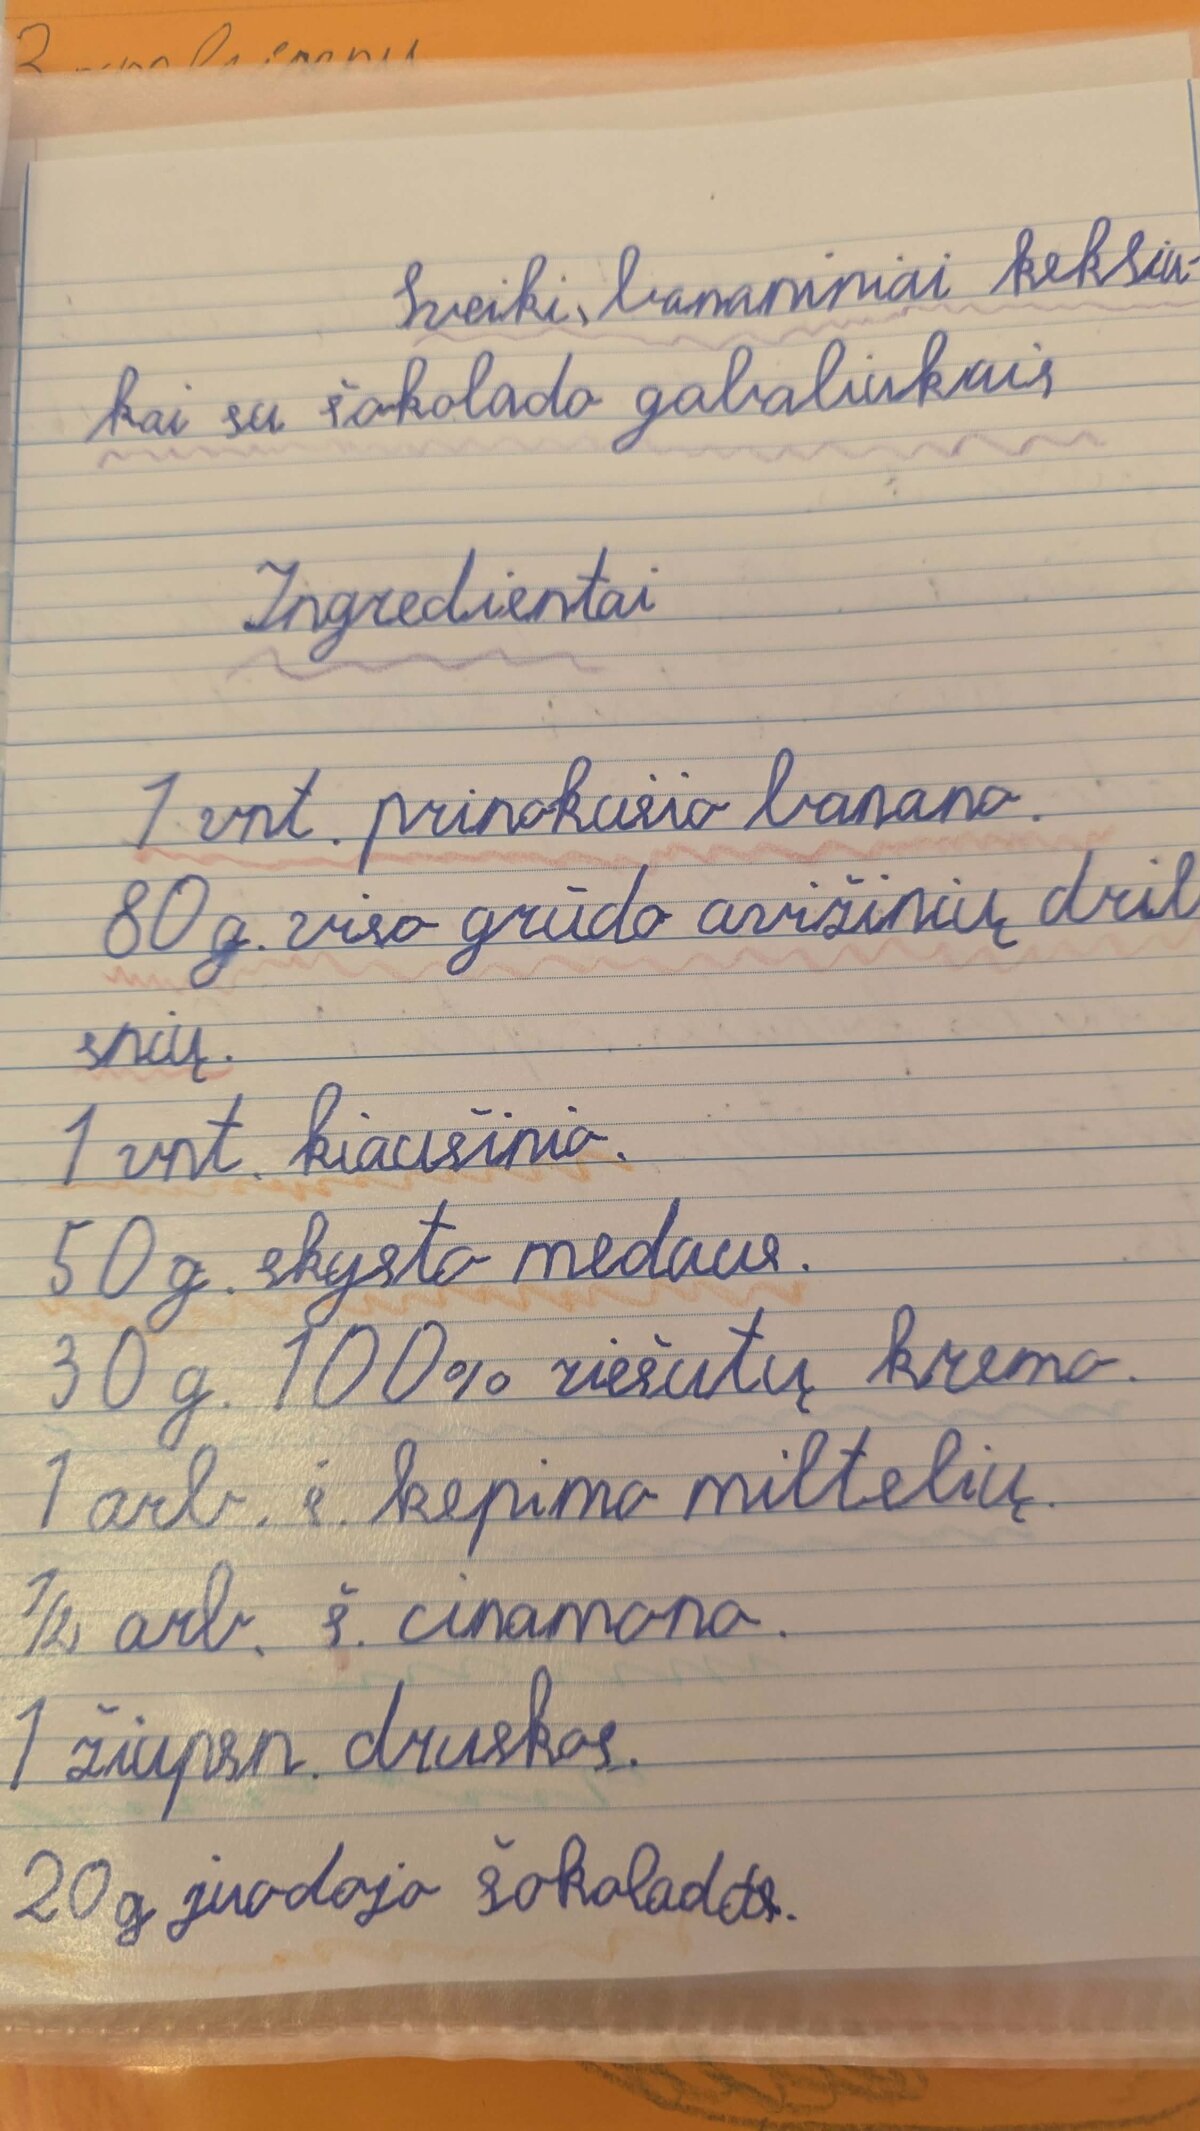 Sveiki, bananiniai keksiu-
kai su šokolado gabaliukais
Ingredientai
1 vnt. prinokusio banano.
80 g. viso grūdo avižinių dril
snių.
1 vnt. kiaušinio.
50 g. skysto medaus.
30 g. 100% riešutų kremo.
1 arb. š. kepimo miltelių.
1/2 arb. š. cinamono.
1 žiupsn. druskos.
20g juodojo šokolado.